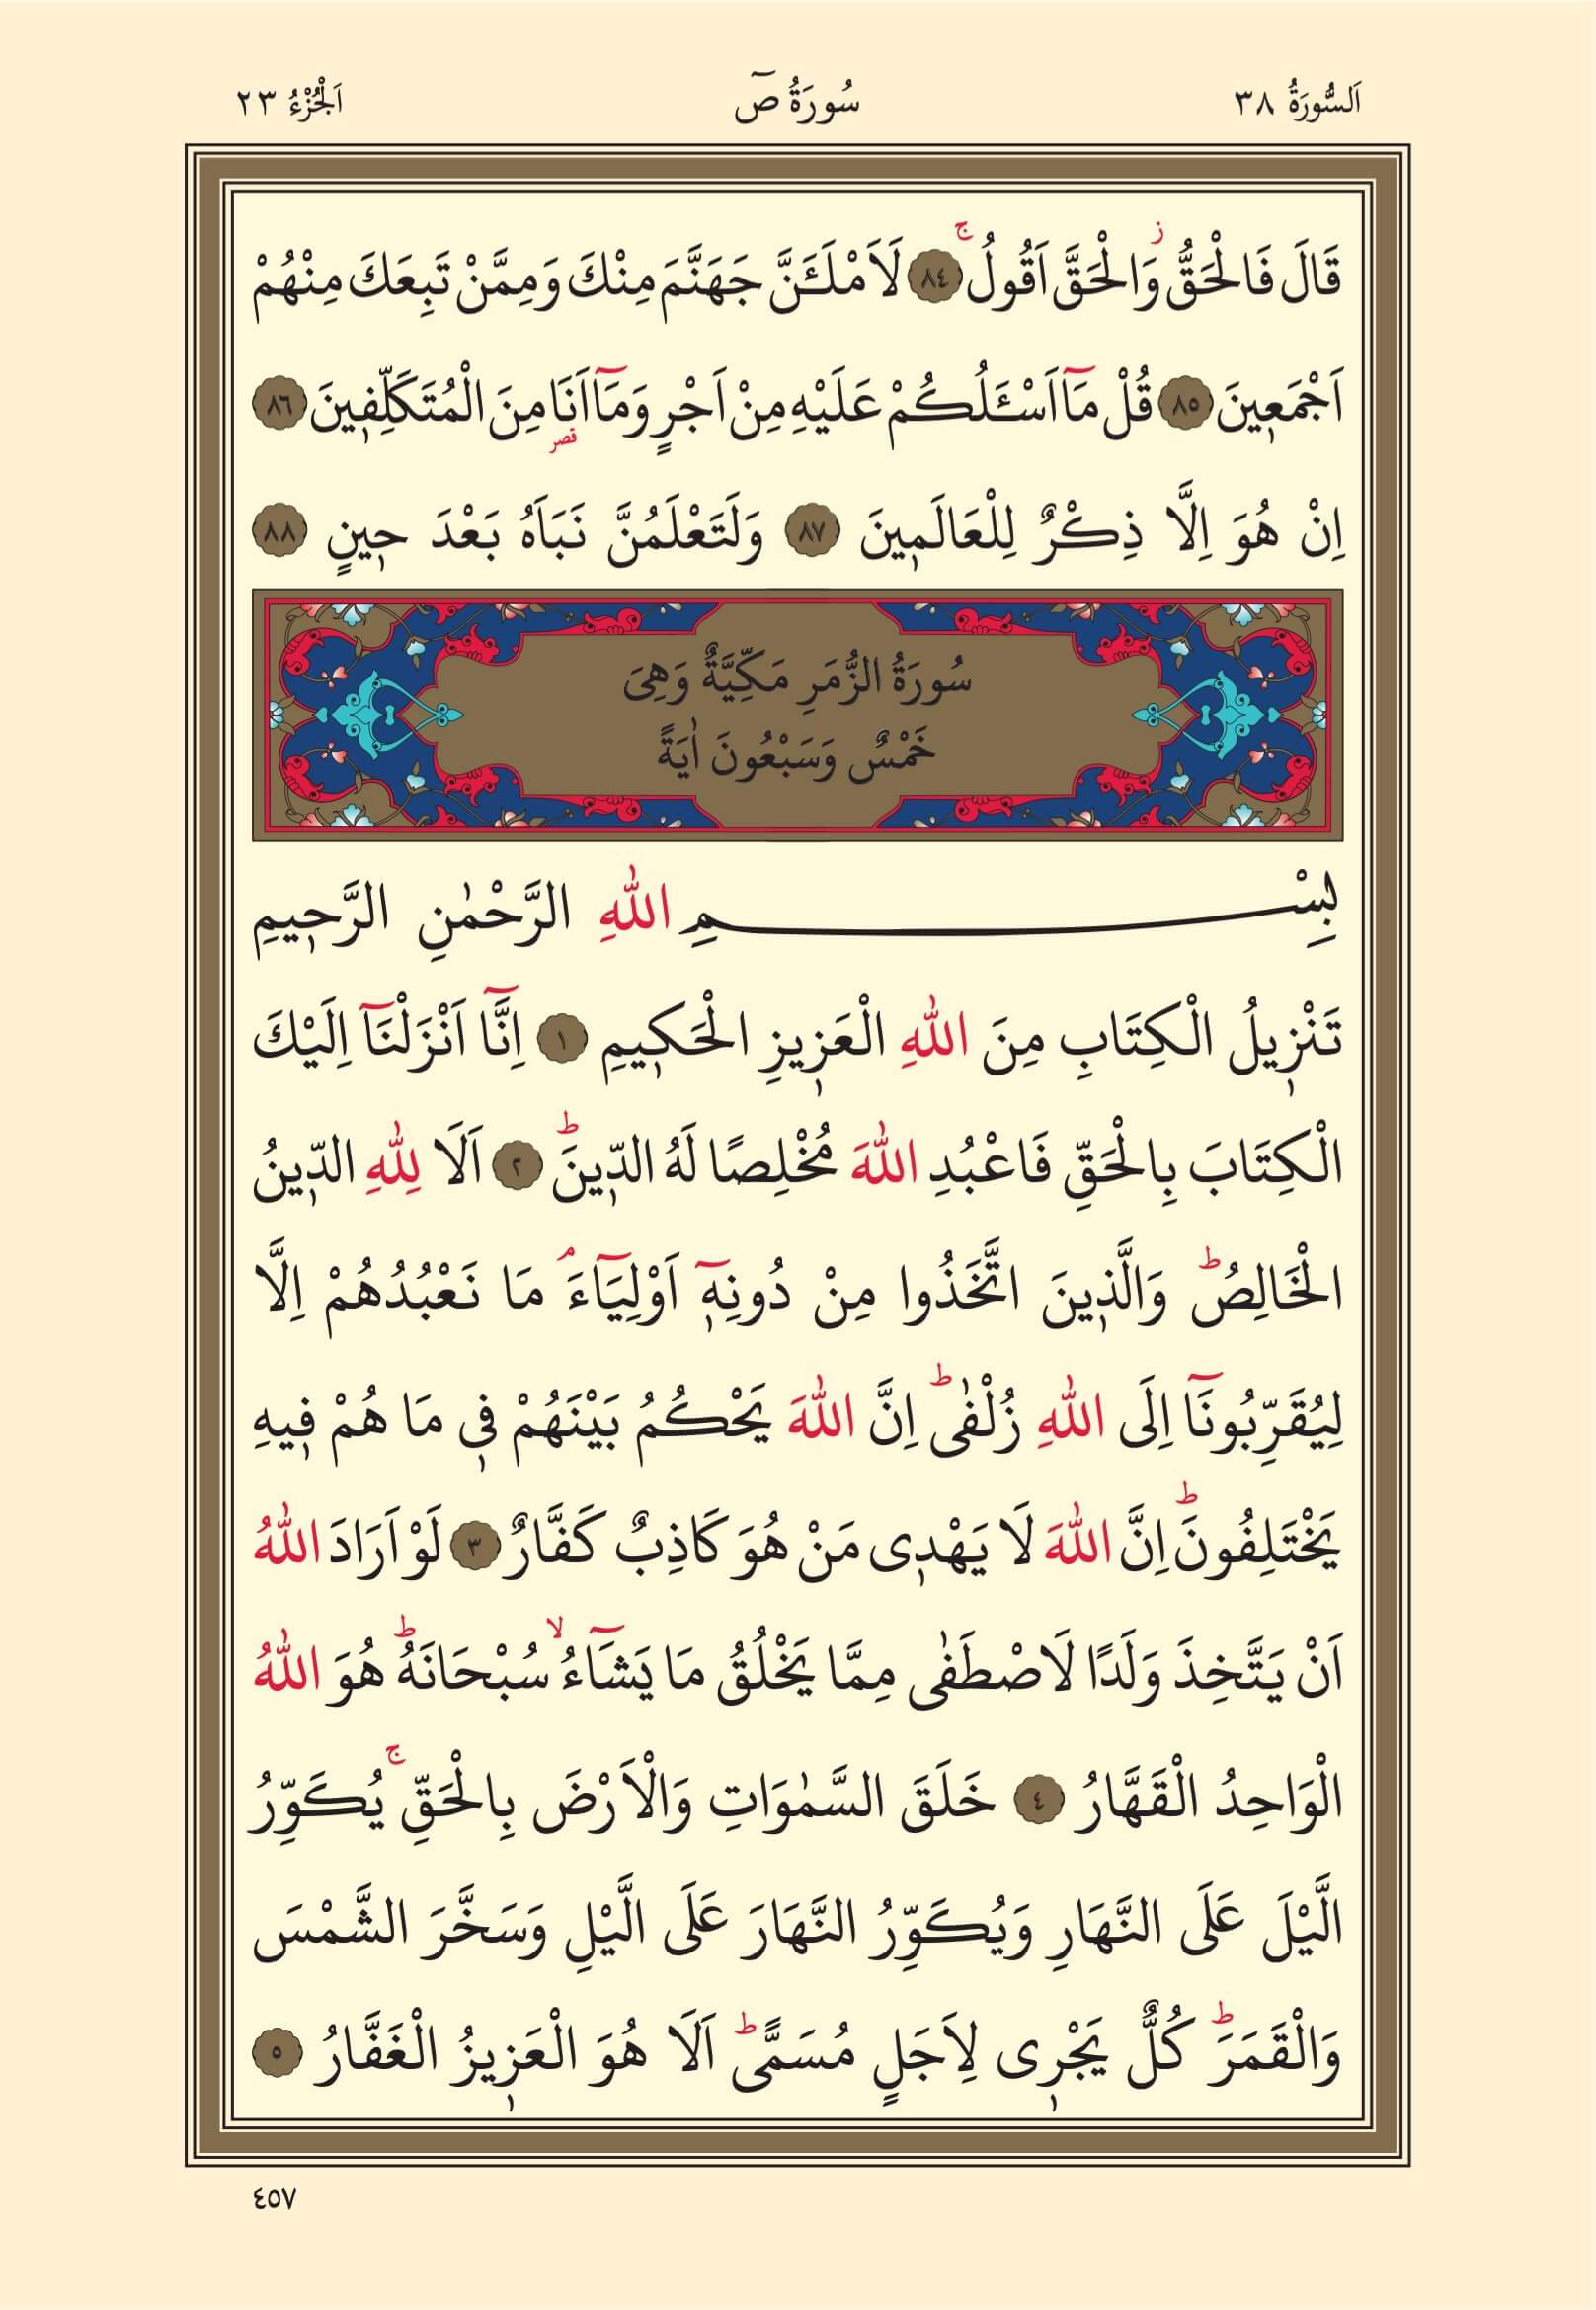 اَلسُّورَةُ ٣٨
سُورَةُ صٓ
اَلْجُزْءُ ٢٣
قَالَ فَالْحَقُّ ز وَالْحَقَّ اَقُولُ ج ٨٤ لَاَمْلَـَٔنَّ جَهَنَّمَ مِنْكَ وَمِمَّنْ تَبِعَكَ مِنْهُمْ
اَجْمَعٖينَ ٨٥ قُلْ مَٓا اَسْـَٔلُكُمْ عَلَيْهِ مِنْ اَجْرٍ وَمَٓا اَنَا۬ قصر مِنَ الْمُتَكَلِّفٖينَ ٨٦
اِنْ هُوَ اِلَّا ذِكْرٌ لِلْعَالَمٖينَ ٨٧ وَلَتَعْلَمُنَّ نَبَاَهُ بَعْدَ حٖينٍ ٨٨
سُورَةُ الزُّمَرِ مَكِّيَّةٌ وَهِيَ
خَمْسٌ وَسَبْعُونَ اٰيَةً
بِسْمِ اللّٰهِ الرَّحْمٰنِ الرَّحٖيمِ
تَنْزٖيلُ الْكِتَابِ مِنَ اللّٰهِ الْعَزٖيزِ الْحَكٖيمِ ١ اِنَّٓا اَنْزَلْنَٓا اِلَيْكَ
الْكِتَابَ بِالْحَقِّ فَاعْبُدِ اللّٰهَ مُخْلِصًا لَهُ الدّٖينَ ط ٢ اَلَا لِلّٰهِ الدّٖينُ
الْخَالِصُ ط وَالَّذٖينَ اتَّخَذُوا مِنْ دُونِهٖٓ اَوْلِيَٓاءَ م مَا نَعْبُدُهُمْ اِلَّا
لِيُقَرِّبُونَٓا اِلَى اللّٰهِ زُلْفٰى ط اِنَّ اللّٰهَ يَحْكُمُ بَيْنَهُمْ فٖى مَا هُمْ فٖيهِ
يَخْتَلِفُونَ ط اِنَّ اللّٰهَ لَا يَهْدٖى مَنْ هُوَ كَاذِبٌ كَفَّارٌ ٣ لَوْ اَرَادَ اللّٰهُ
اَنْ يَتَّخِذَ وَلَدًا لَاصْطَفٰى مِمَّا يَخْلُقُ مَا يَشَٓاءُ لا سُبْحَانَهُ ط هُوَ اللّٰهُ
الْوَاحِدُ الْقَهَّارُ ٤ خَلَقَ السَّمٰوَاتِ وَالْاَرْضَ بِالْحَقِّ ج يُكَوِّرُ
الَّيْلَ عَلَى النَّهَارِ وَيُكَوِّرُ النَّهَارَ عَلَى الَّيْلِ وَسَخَّرَ الشَّمْسَ
وَالْقَمَرَ ط كُلٌّ يَجْرٖى لِاَجَلٍ مُسَمًّى ط اَلَا هُوَ الْعَزٖيزُ الْغَفَّارُ ٥
٤٥٧